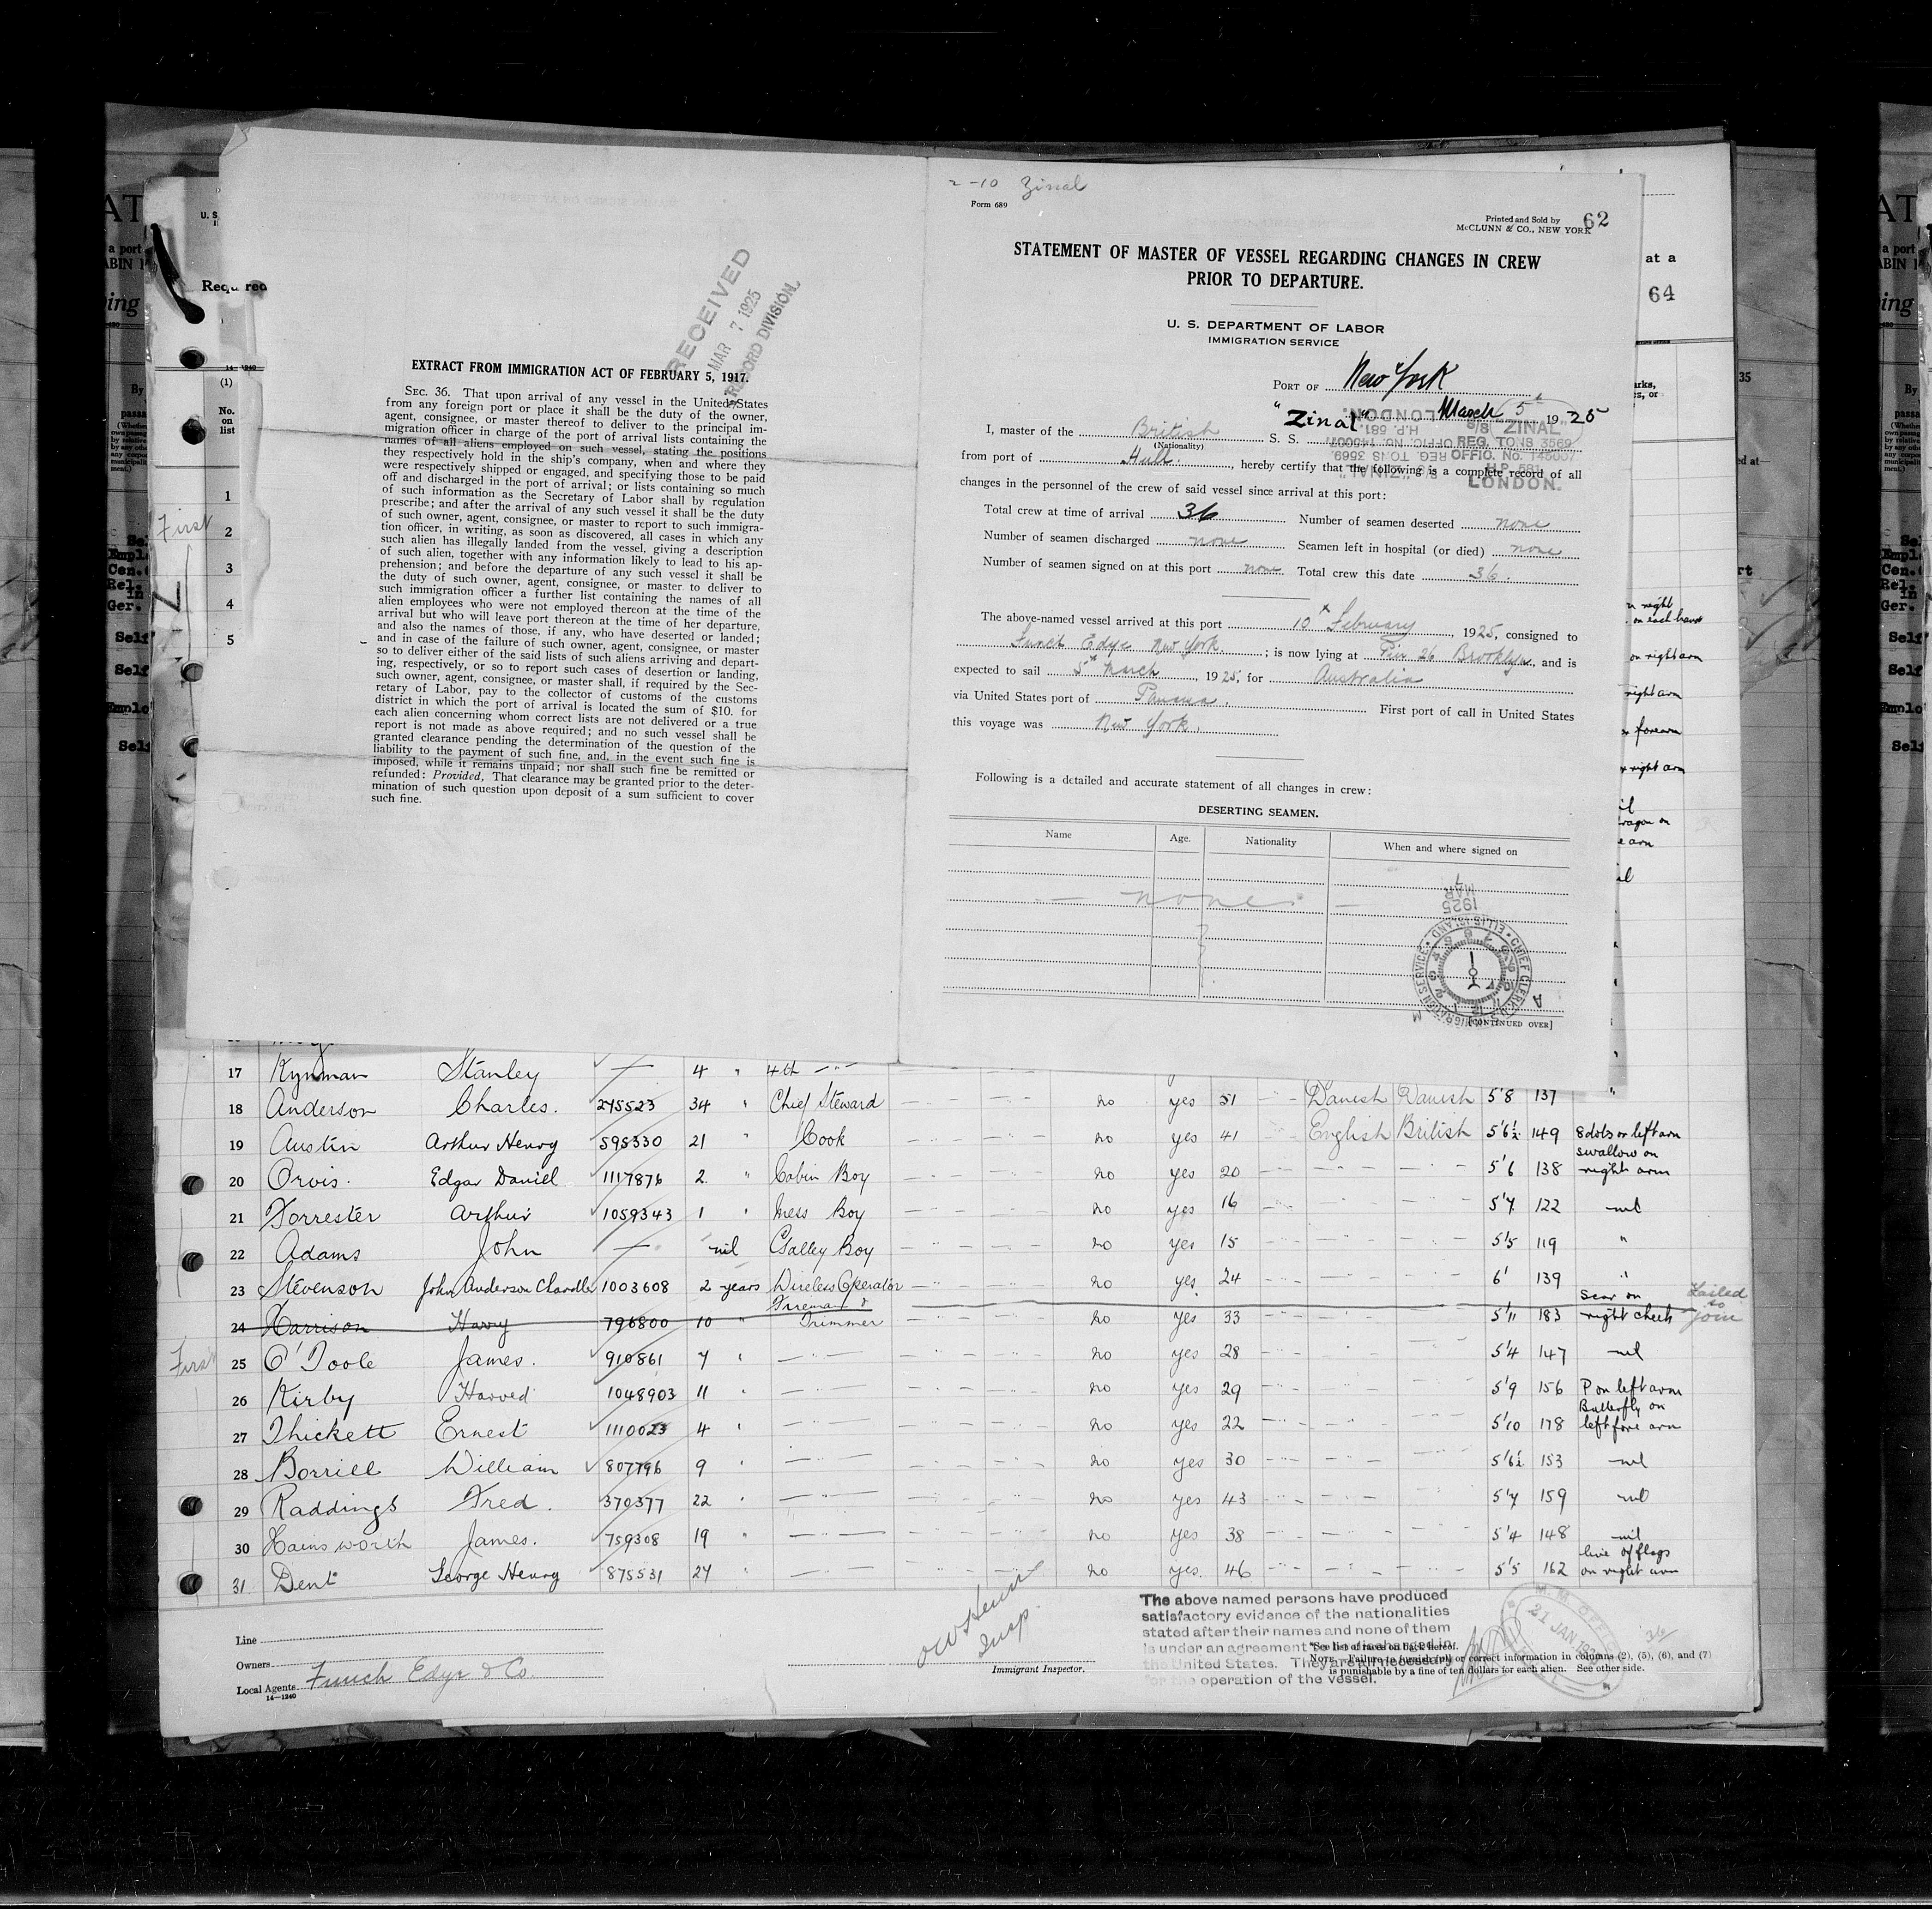 EXTRACT FROM IMMIGRATION ACT OF FEBRUARY 5, 1917.
SEC. 36. That upon arrival of any vessel in the United States
from any foreign port or place it shall be the duty of the owner,
agent, consignee, or master thereof to deliver to the principal im-
migration officer in charge of the port of arrival lists containing the
names of all aliens employed on such vessel, stating the positions
they respectively hold in the ship's company, when and where they
were respectively shipped or engaged, and specifying those to be paid
off and discharged in the port of arrival; or lists containing so much
of such information as the Secretary of Labor shall by regulation
prescribe; and after the arrival of any such vessel it shall be the duty
of such owner, agent, consignee, or master to report to such immigra-
tion officer, in writing, as soon as discovered, all cases in which any
such alien has illegally landed from the vessel, giving a description
of such alien, together with any information likely to lead to his ap-
prehension; and before the departure of any such vessel it shall be
the duty of such owner, agent, consignee, or master to deliver to
such immigration officer a further list containing the names of all
alien employees who were not employed thereon at the time of the
arrival but who will leave port thereon at the time of her departure,
and also the names of those, if any, who have deserted or landed;
and in case of the failure of such owner, agent, consignee, or master
so to deliver either of the said lists of such aliens arriving and depart-
ing, respectively, or so to report such cases of desertion or landing,
such owner, agent, consignee, or master shall, if required by the Sec-
retary of Labor, pay to the collector of customs of the customs
district in which the port of arrival is located the sum of $10. for
each alien concerning whom correct lists are not delivered or a true
report is not made as above required; and no such vessel shall be
granted clearance pending the determination of the question of the
liability to the payment of such fine, and, in the event such fine is
imposed, while it remains unpaid; nor shall such fine be remitted or
refunded: Provided, That clearance may be granted prior to the deter-
mination of such question upon deposit of a sum sufficient to cover
such fine.
RECEIVED
MAR 7 1925
RECORD DIVISION
2-10 Zinal
Form 689
Printed and Sold by
McCLUNN & CO., NEW YORK
62
STATEMENT OF MASTER OF VESSEL REGARDING CHANGES IN CREW
PRIOR TO DEPARTURE.
U. S. DEPARTMENT OF LABOR
IMMIGRATION SERVICE
PORT OF New York
March 5th 1925
I, master of the British S. S. "Zinal"
(Nationality)
S/S "ZINAL"
REG. TONS 3569
OFFIC. NO. 145007
H.P. 581.
LONDON.
from port of Hull, hereby certify that the following is a complete record of all
changes in the personnel of the crew of said vessel since arrival at this port:
Total crew at time of arrival 36 Number of seamen deserted none
Number of seamen discharged none Seamen left in hospital (or died) none
Number of seamen signed on at this port none Total crew this date 36.
The above-named vessel arrived at this port 10th February, 1925, consigned to
Funch Edye New York; is now lying at Pier 26 Brooklyn, and is
expected to sail 5th March, 1925, for Australia
via United States port of Panama. First port of call in United States
this voyage was New York.
Following is a detailed and accurate statement of all changes in crew:
DESERTING SEAMEN.
Name Age. Nationality When and where signed on
— none —
1925
MAR
7
CHIEF CLERK
IMMIGRATION SERVICE · ELLIS ISLAND
[CONTINUED OVER]
at a
64
Required
14-1240
(1)
No.
on
list
1
First 2
3
4
5
17 Kynman Stanley — 4 " 4th
18 Anderson Charles. 245523 34 " Chief Steward no yes 51 Danish Danish 5'8 137 "
19 Austin Arthur Henry 595330 21 " Cook no yes 41 English British 5'6½ 149 8 dots on left arm
20 Orvis. Edgar Daniel 1117876 2 " Cabin Boy no yes 20 5'6 138 swallow on right arm
21 Forrester Arthur 1059343 1 " Mess Boy no yes 16 5'7 122 nil
22 Adams John — nil Galley Boy no yes 15 5'5 119 "
23 Stevenson John Anderson Chandler 1003608 2 years Wireless Operator no yes 24 6' 139 "
24 Harrison Harry 796800 10 " Fireman & Trimmer no yes 33 5'11 183 scar on right cheek Failed to join
First 25 O'Toole James. 910861 7 " no yes 28 5'4 147 nil
26 Kirby Harved 1048903 11 " no yes 29 5'9 156 P on left arm
27 Thickett Ernest 1110023 4 " no yes 22 5'10 178 Butterfly on left fore arm
28 Borrill William 807796 9 " no yes 30 5'6½ 153 nil
29 Raddings Fred. 370377 22 " no yes 43 5'7 159 nil
30 Hainsworth James. 759308 19 " no yes 38 5'4 148 nil
31 Dent George Henry 875531 27 " no yes. 46 5'5 162 line of flags on right arm
Line
Owners
Local Agents Funch Edye & Co.
14—1240
Insp.
Immigrant Inspector.
The above named persons have produced
satisfactory evidence of the nationalities
stated after their names and none of them
is under an agreement to be discharged in
the United States. They are all necessary
for the operation of the vessel.
*See list of races on back hereof.
NOTE.—Failure to furnish full or correct information in columns (2), (5), (6), and (7)
is punishable by a fine of ten dollars for each alien. See other side.
M. M. OFFICE
21 JAN 1925
36